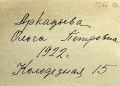 Аркадьева
Ольга Петровна
1922г.
Колодезная 15